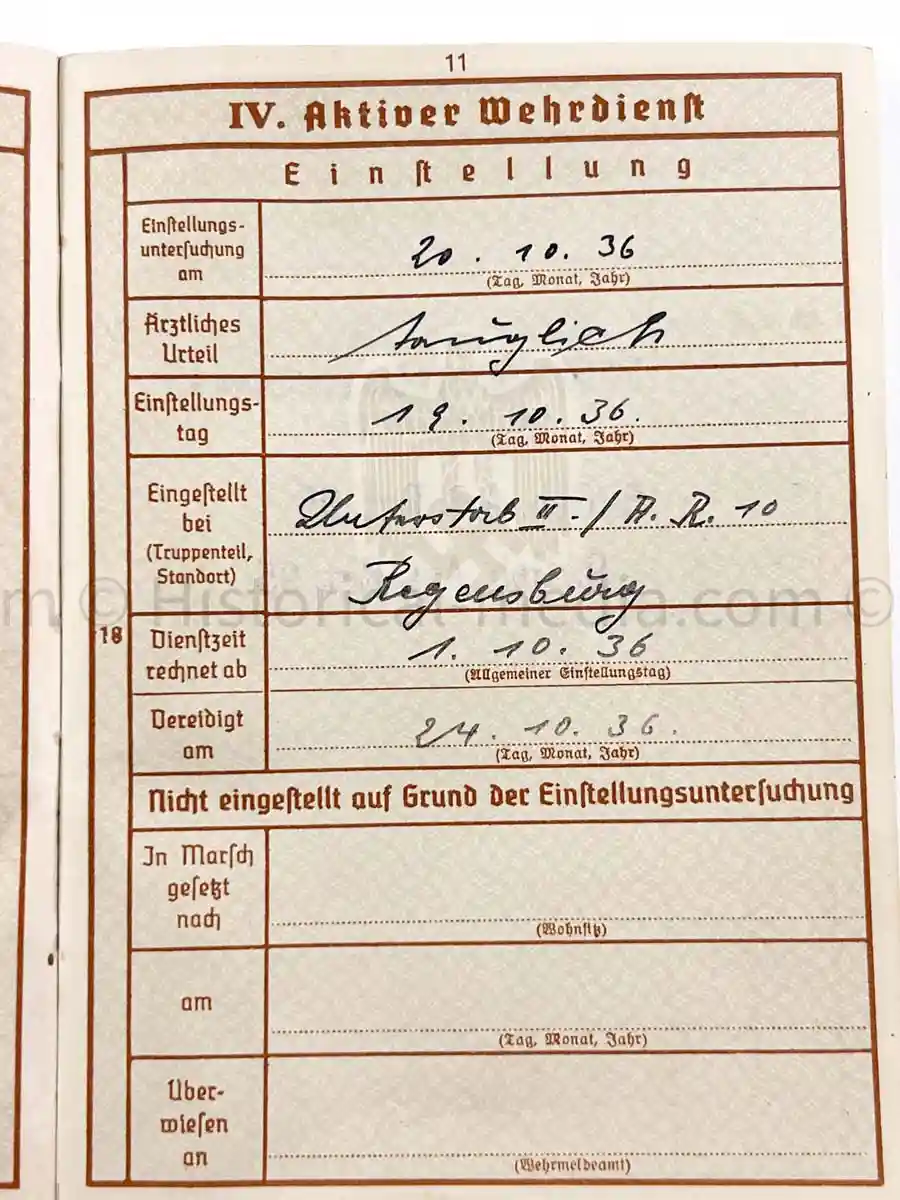 11
IV. Aktiver Wehrdienst
Einstellung
Einstellungs-
untersuchung
am
20. 10. 36
(Tag, Monat, Jahr)
Ärztliches
Urteil
tauglich
Einstellungs-
tag
19. 10. 36.
(Tag, Monat, Jahr)
Eingestellt
bei
(Truppenteil,
Standort)
Unterstab II./A. R. 10
Regensburg
© Historical-media.com ©
18
Dienstzeit
rechnet ab
1. 10. 36
(Allgemeiner Einstellungstag)
Vereidigt
am
24. 10. 36.
(Tag, Monat, Jahr)
Nicht eingestellt auf Grund der Einstellungsuntersuchung
In Marsch
gesetzt
nach
(Wohnsitz)
am
(Tag, Monat, Jahr)
Über-
wiesen
an
(Wehrmeldeamt)